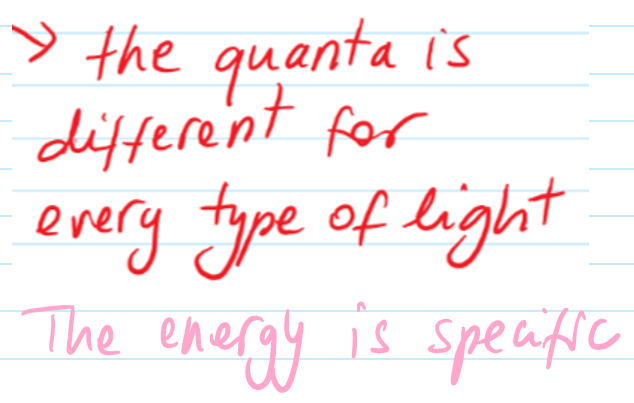 → the quanta is
different for
every type of light
The energy is specific